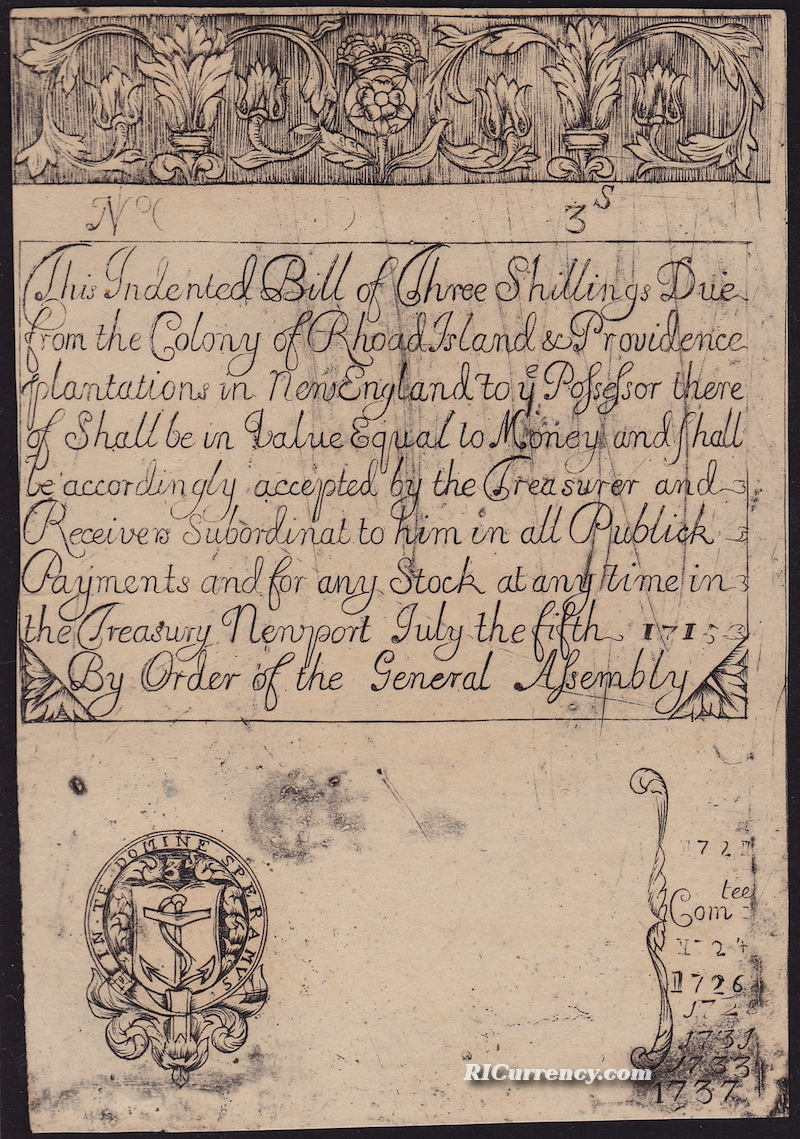 No( )
3 S
This Indented Bill of Three Shillings Due
from the Colony of Rhoad Island & Providence
plantations in New England to yͤ Poſseſsor there
of Shall be in Value Equal to Money and ſhall
be accordingly accepted by the Treasurer and
Receivers Subordinat to him in all Publick
Payments and for any Stock at any time in
the Treasury Newport July the fifth 1715
By Order of the General Aſsembly
IN · TE · DOMINE SPERAMVS
3s
1721
tee
Com :
1724
1726
1731
1733
1737
RICurrency.com